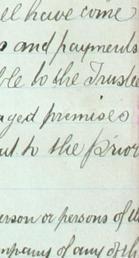 ll have come
and payments
ble to the Trustee
aged premises
ut to the prior
erson or persons of th
mpany of any of th